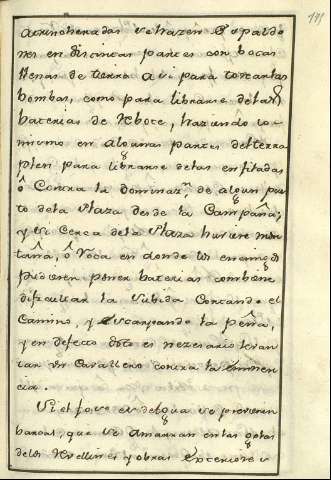 191
atrincheradas se hazen Espaldo
nes en distintas partes con bocas
llenas de tierra asi para cortar las
bombas, como para librarse de las
baterias de Rebote, haziendo lo
mismo en algunas partes del terra
plen para librarse de las enfiladas
ô contra la dominaz.n de algun pto
to de la Plaza desde la Campaña,
y si cerca de la Plaza huviere mon
taña, ô Roca en donde los enemigos
pudieren poner baterias combiene
dificultar la subida Cortando el
Camino, y escarpando la peña,
y en defecto dôto es nezesario levan
tar un Cavallero contra la eminen
cia.
Si el foso es de agua se previenen
barcas, que se amarran en las golas
de los Revellines y obras Exteriores